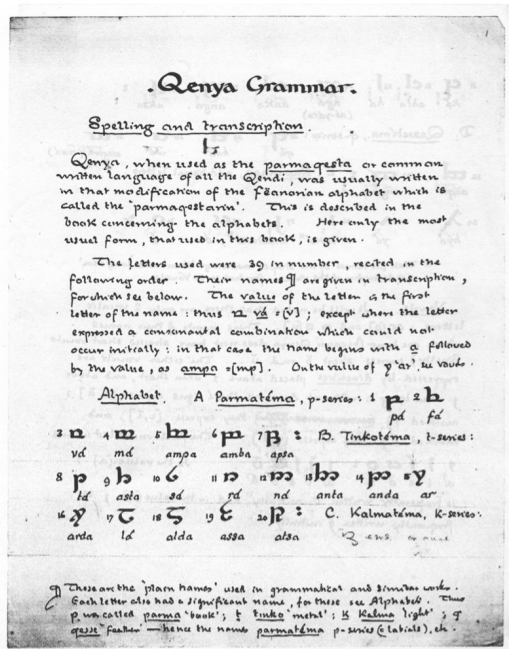 . Qenya Grammar.
Spelling and transcription.
Qenya, when used as the parmaqesta or common
written language of all the Qendi, was usually written
in that modification of the Fëanorian alphabet which is
called the 'parmaqestarin'. This is described in the
book concerning the alphabets. Here only the most
usual form, that used in this book, is given.
The letters used were 39 in number, recited in the
following order. Their names ¶ are given in transcription,
for which see below. The value of the letter is the first
letter of the name: thus vá = [v]; except where the letter
expressed a consonantal combination which could not
occur initially: in that case the name begins with a followed
by the value, as ampa = [mp]. On the value of 'ar', see
Alphabet, A Parmatéma, p-series: 1 2
pá fá
3 4 5 6 7 : B. Tinkotéma, t-series:
vá má ampa amba apsa
8 9 10 11 12 13 14 15
tá asta sá rá ná anta anda ar
16 17 18 19 20 : C. Kalmatéma, K-series:
arda lá alda assa atsa
¶ These are the 'plain names' used in grammatical and similar works.
Each letter also had a significant name, for these see Alphabet. Thus
p was called parma 'book'; t tinko 'metal'; k kalma 'light'; q
qesse 'feather' — hence the names parmatéma p-series (labials), etc.